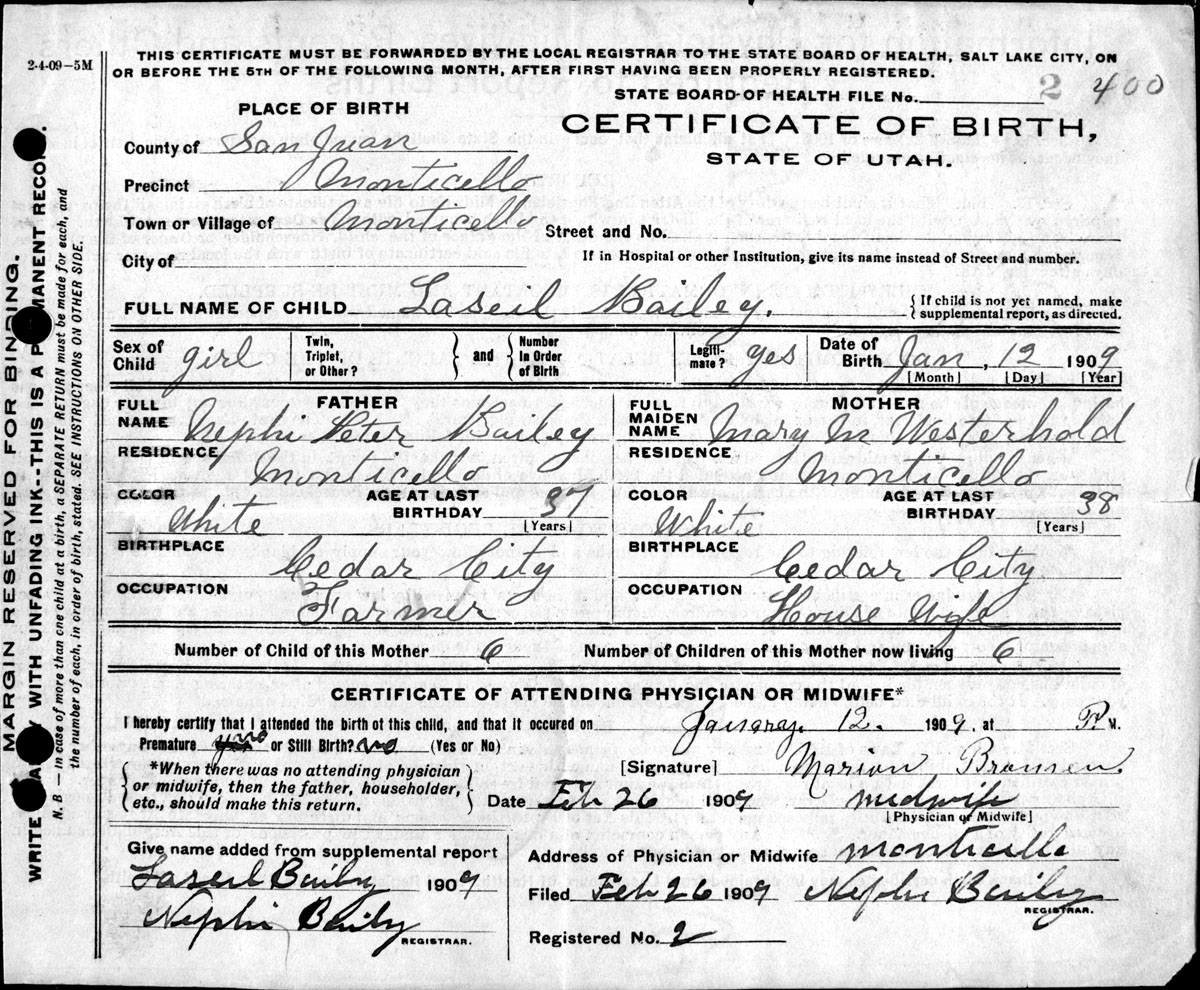 2-4-09—5M
THIS CERTIFICATE MUST BE FORWARDED BY THE LOCAL REGISTRAR TO THE STATE BOARD OF HEALTH, SALT LAKE CITY, ON
OR BEFORE THE 5TH OF THE FOLLOWING MONTH, AFTER FIRST HAVING BEEN PROPERLY REGISTERED.
STATE BOARD OF HEALTH FILE No. 2 400
PLACE OF BIRTH
CERTIFICATE OF BIRTH,
STATE OF UTAH.
County of San Juan
Precinct Monticello
Town or Village of Monticello Street and No.
City of If in Hospital or other Institution, give its name instead of Street and number.
FULL NAME OF CHILD Laseil Bailey. { If child is not yet named, make
supplemental report, as directed.
Sex of Child girl Twin, Triplet, or Other? } and { Number in Order of Birth Legiti- mate? yes Date of Birth Jan, 12 1909
[Month] [Day] [Year]
FATHER
FULL NAME Nephi Peter Bailey
RESIDENCE Monticello
COLOR White AGE AT LAST BIRTHDAY 37 [Years]
BIRTHPLACE Cedar City
OCCUPATION Farmer
MOTHER
FULL MAIDEN NAME Mary M Westerhold
RESIDENCE Monticello
COLOR White AGE AT LAST BIRTHDAY 38 [Years]
BIRTHPLACE Cedar City
OCCUPATION House Wife
Number of Child of this Mother 6 Number of Children of this Mother now living 6
CERTIFICATE OF ATTENDING PHYSICIAN OR MIDWIFE*
I hereby certify that I attended the birth of this child, and that it occured on January. 12. 1909. at P. M.
Premature no or Still Birth? no (Yes or No)
{ *When there was no attending physician
or midwife, then the father, householder,
etc., should make this return. }
[Signature] Marion Bronsen.
Date Feb 26 1909 midwife
[Physician or Midwife]
Give name added from supplemental report
Laseil Baily 1909
Nephi Baily
REGISTRAR.
Address of Physician or Midwife Monticello
Filed Feb 26 1909 Nephi Baily
REGISTRAR.
Registered No. 2
MARGIN RESERVED FOR BINDING.
WRITE WITH UNFADING INK--THIS IS A MANENT RECO
N. B — In case of more than one child at a birth, a SEPARATE RETURN must be made for each, and
the number of each, in order of birth, stated. SEE INSTRUCTIONS ON OTHER SIDE.